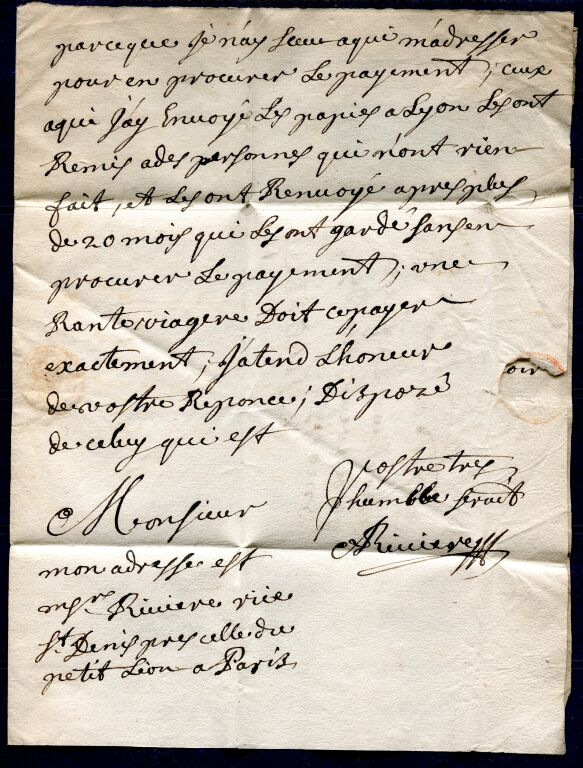 parceque Je n'ay sceu a qui m'adresser
pour en procurer Le payement, ceux
a qui J'ay Envoyé Les papies a Lyon Les ont
Remis a des personnes qui n'ont rien
fait, et Les ont Renvoyé apres plus
de 20 mois qui Les ont gardé sans en
procurer Le payement, une
Rante viagere Doit ce payer
exactement, J'atend L'honeur
de vostre Reponce, Disposé
de celuy qui est
Monsieur
vostre tres
humble servit
Riviere
mon adresse est
Riviere rüe
st Denis pres celle du
petit Lion a Paris